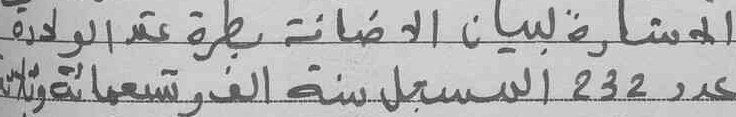 المشار لبيان الاضافة بطرة عقد الولادة
عدد 232 المسجل سنة الف وتسعمائة وثلاثة